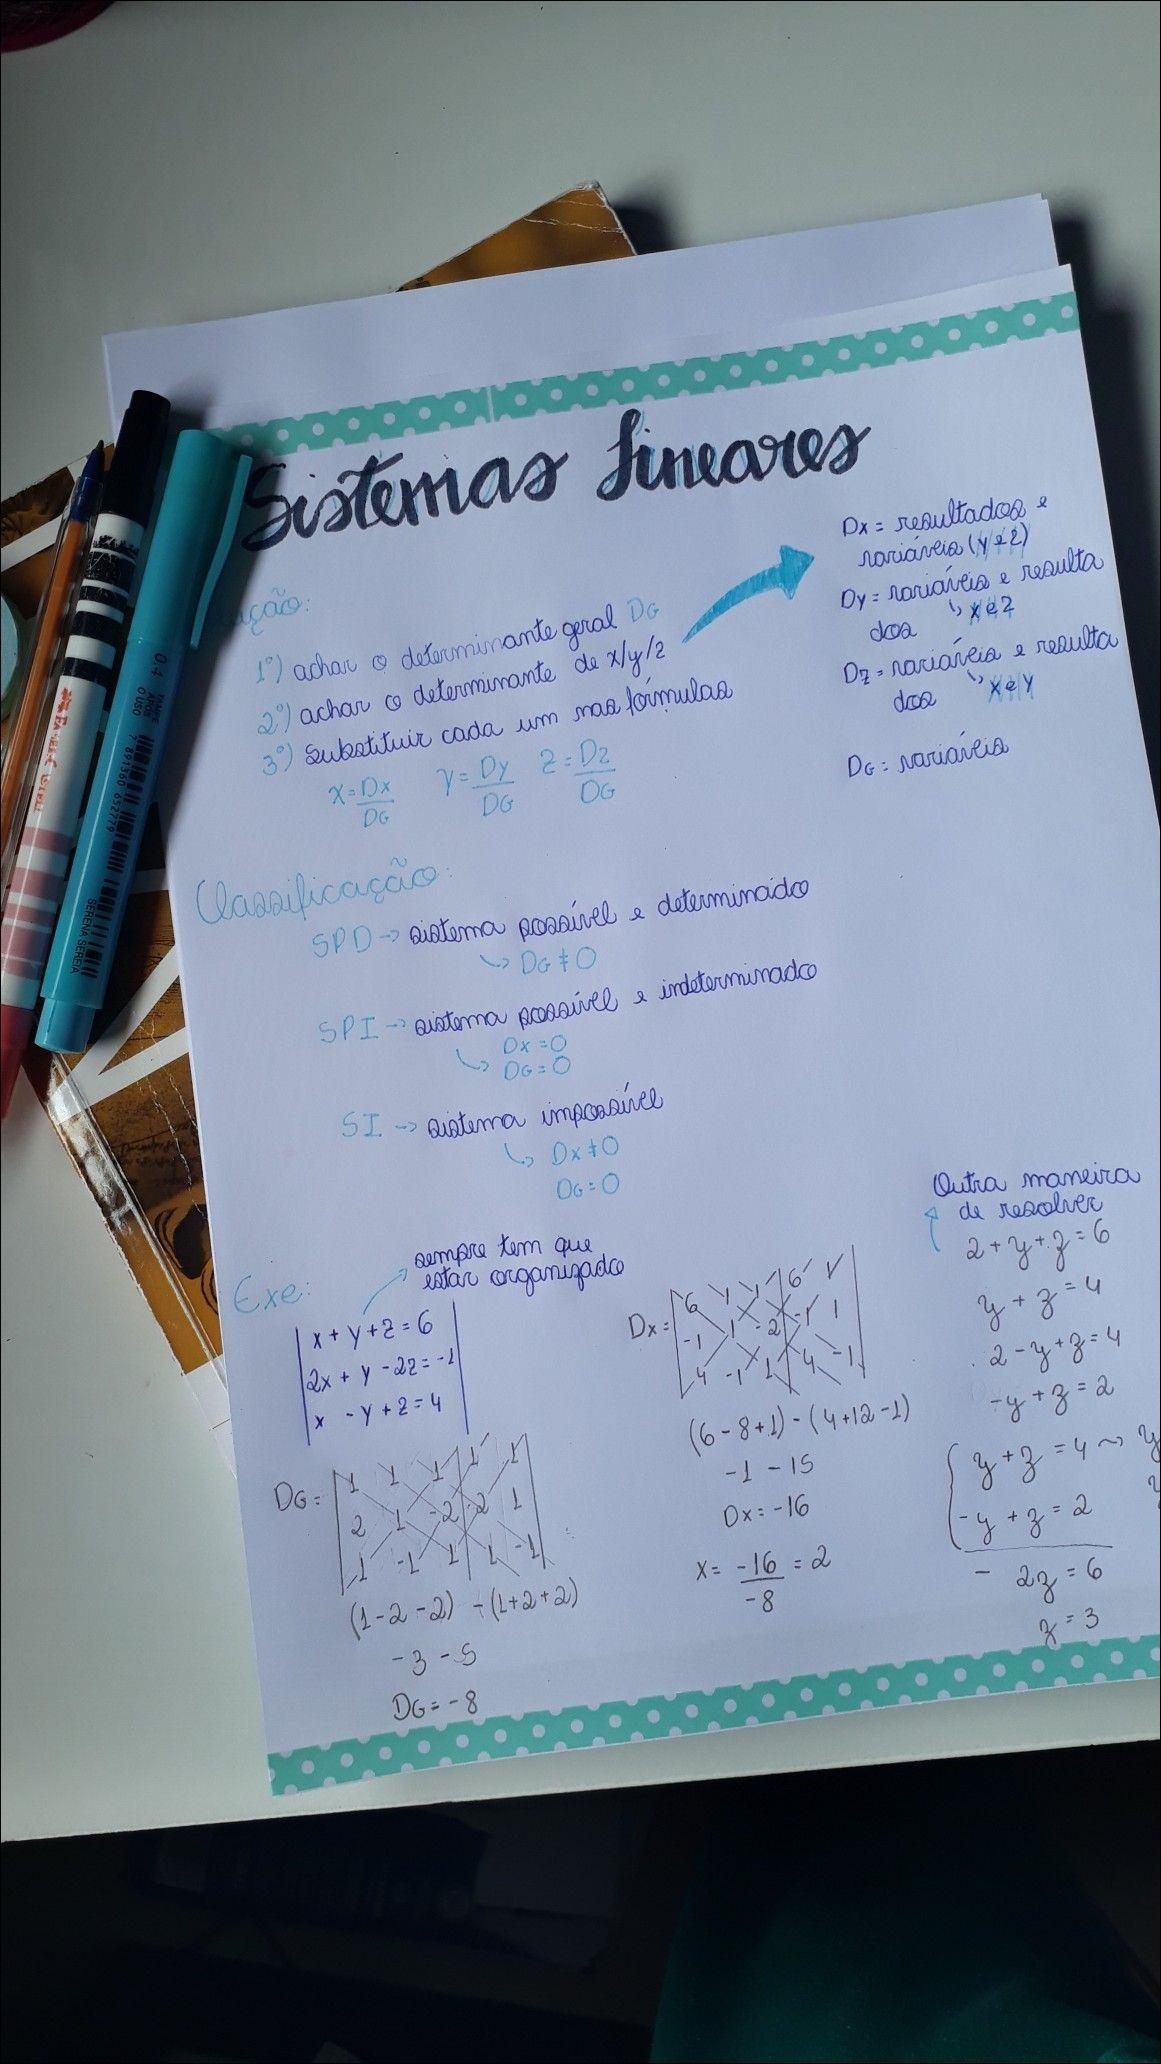 Sistemas Lineares
uação:
1°) achar o determinante geral DG
2°) achar o determinante de x/y/z
3°) substituir cada um nas fórmulas
x = Dx/DG y = Dy/DG z = Dz/DG
Dx = resultados e
variáveis (y e z)
Dy = variáveis e resulta
dos ↳ x e z
Dz = variáveis e resulta
dos ↳ x e y
DG = variáveis
Classificação:
SPD → sistema possível e determinado
↳ DG ≠ 0
SPI → sistema possível e indeterminado
↳ Dx = 0
DG = 0
SI → sistema impossível
↳ Dx ≠ 0
DG = 0
Exe:
sempre tem que
estar organizado
x + y + z = 6
2x + y - 2z = -1
x - y + z = 4
DG =
1 1 1 1 1
2 1 -2 2 1
1 -1 1 1 -1
(1 - 2 - 2) - (1 + 2 + 2)
-3 - 5
DG = -8
Dx =
6 1 1 6 1
-1 1 -2 -1 1
4 -1 1 4 -1
(6 - 8 + 1) - (4 + 12 - 1)
-1 - 15
Dx = -16
x = -16/-8 = 2
Outra maneira
de resolver
2 + y + z = 6
y + z = 4
2 - y + z = 4
-y + z = 2
y + z = 4 ~> y
-y + z = 2
- 2z = 6
z = 3
0.4
7 891360 652779
SERENA SEREIA